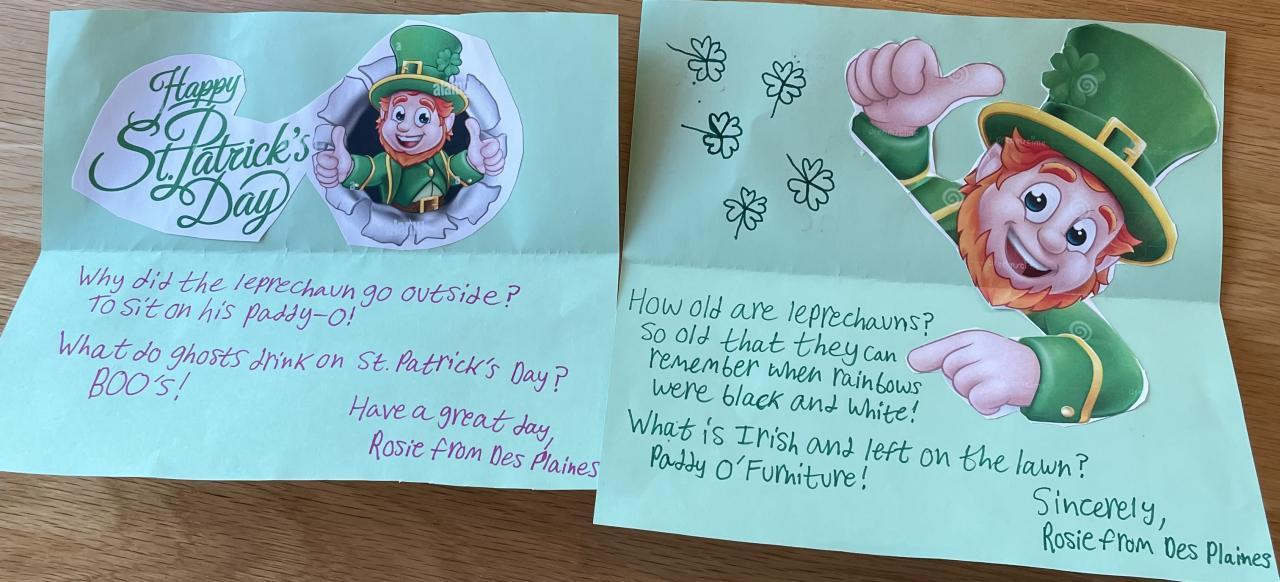 Happy
St. Patrick's
Day
alamy
a
a
Why did the leprechaun go outside?
To sit on his Paddy-O!
What do ghosts drink on St. Patrick's Day?
BOO's!
Have a great day,
Rosie from Des Plaines
How old are leprechauns?
So old that they can
remember when rainbows
were black and white!
What is Irish and left on the lawn?
Paddy O'Furniture!
Sincerely,
Rosie from Des Plaines